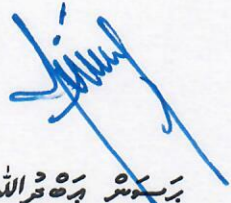 ޙަސަން ޢަބްދުﷲ